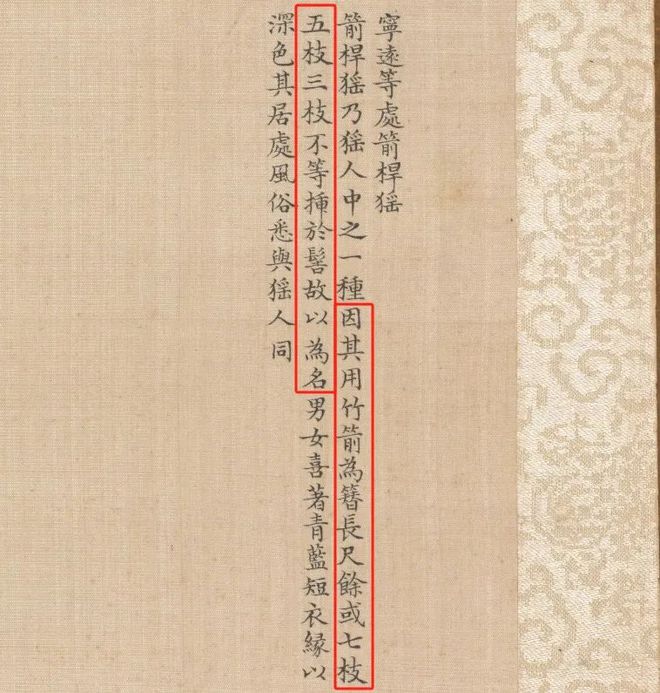 寧遠等處箭桿猺
箭桿猺乃猺人中之一種因其用竹箭為簪長尺餘或七枝
五枝三枝不等揷於髻故以為名男女喜著青藍短衣緣以
深色其居處風俗悉與猺人同